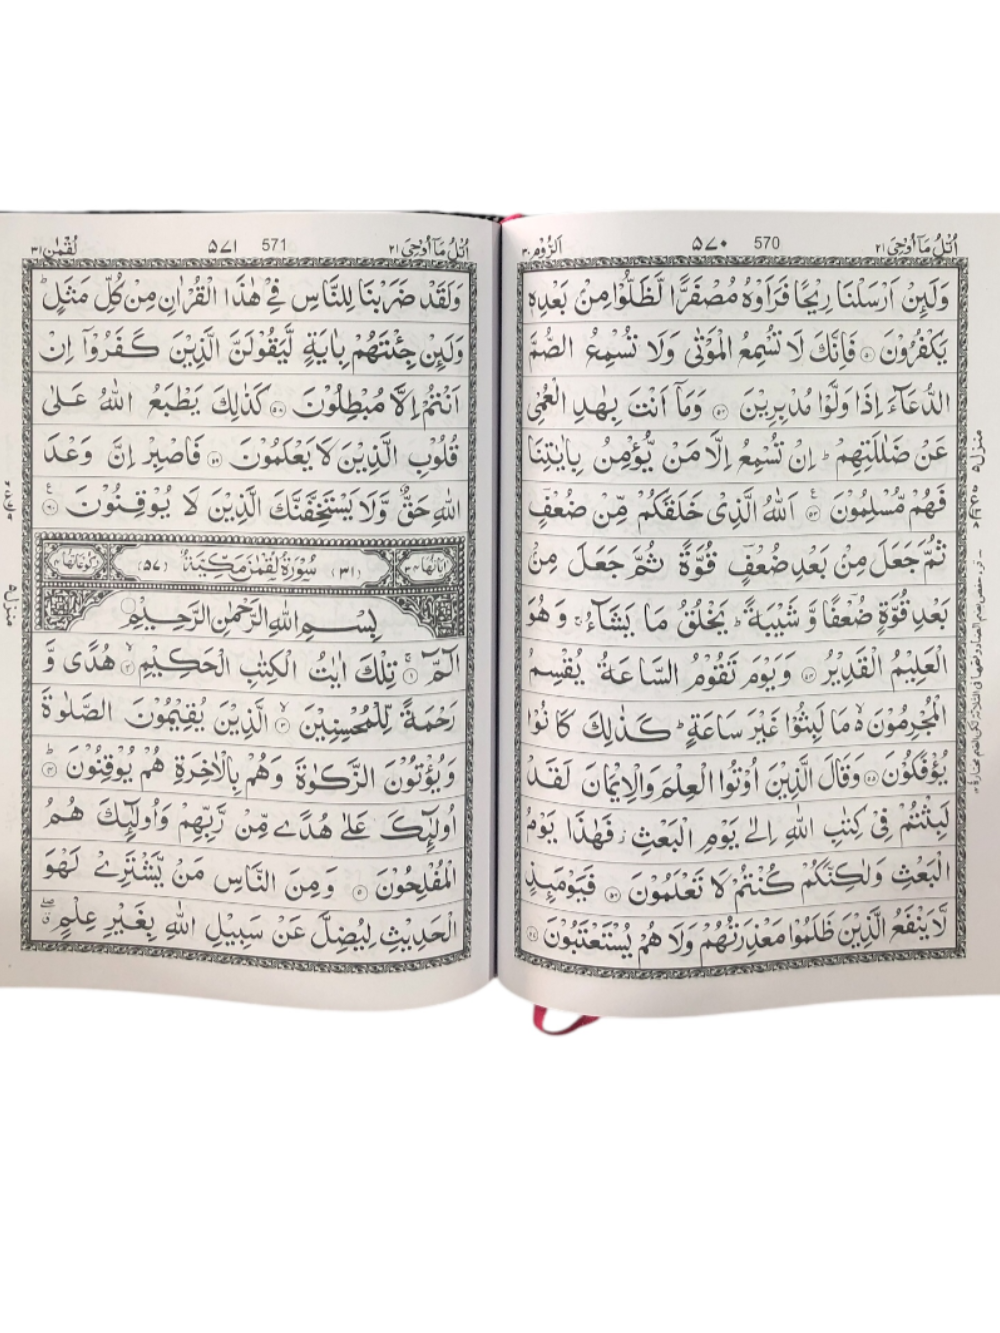 اُتْلُ مَآ اُوْحِیَ ۲۱ 570 ۵۷۰ اَلرُّوْم ۳۰
وَلَىِٕنْ اَرْسَلْنَا رِیْحًا فَرَاَوْهُ مُصْفَرًّا لَّظَلُّوْا مِنْۢ بَعْدِهٖ
یَكْفُرُوْنَ ۝۵۱ فَاِنَّكَ لَا تُسْمِعُ الْمَوْتٰی وَلَا تُسْمِعُ الصُّمَّ
الدُّعَآءَ اِذَا وَلَّوْا مُدْبِرِیْنَ ۝۵۲ وَمَآ اَنْتَ بِهٰدِ الْعُمْیِ
عَنْ ضَلٰلَتِهِمْ ؕ اِنْ تُسْمِعُ اِلَّا مَنْ یُّؤْمِنُ بِاٰیٰتِنَا
فَهُمْ مُّسْلِمُوْنَ ۝۵۳ اَللهُ الَّذِیْ خَلَقَكُمْ مِّنْ ضُعْفٍ
ثُمَّ جَعَلَ مِنْۢ بَعْدِ ضُعْفٍ قُوَّةً ثُمَّ جَعَلَ مِنْۢ
بَعْدِ قُوَّةٍ ضُعْفًا وَّ شَیْبَةً ؕ یَخْلُقُ مَا یَشَآءُ ۚ وَ هُوَ
الْعَلِیْمُ الْقَدِیْرُ ۝۵۴ وَیَوْمَ تَقُوْمُ السَّاعَةُ یُقْسِمُ
الْمُجْرِمُوْنَ ۙ۬ مَا لَبِثُوْا غَیْرَ سَاعَةٍ ؕ كَذٰلِكَ كَانُوْا
یُؤْفَكُوْنَ ۝۵۵ وَقَالَ الَّذِیْنَ اُوْتُوا الْعِلْمَ وَالْاِیْمَانَ لَقَدْ
لَبِثْتُمْ فِیْ كِتٰبِ اللهِ اِلٰی یَوْمِ الْبَعْثِ ز فَهٰذَا یَوْمُ
الْبَعْثِ وَلٰكِنَّكُمْ كُنْتُمْ لَا تَعْلَمُوْنَ ۝۵۶ فَیَوْمَىِٕذٍ
لَّا یَنْفَعُ الَّذِیْنَ ظَلَمُوْا مَعْذِرَتُهُمْ وَلَا هُمْ یُسْتَعْتَبُوْنَ ۝۵۷
منزل ۵
اُتْلُ مَآ اُوْحِیَ ۲۱ 571 ۵۷۱ لُقْمٰن ۳۱
وَلَقَدْ ضَرَبْنَا لِلنَّاسِ فِیْ هٰذَا الْقُرْاٰنِ مِنْ كُلِّ مَثَلٍ ؕ
وَلَىِٕنْ جِئْتَهُمْ بِاٰیَةٍ لَّیَقُوْلَنَّ الَّذِیْنَ كَفَرُوْۤا اِنْ
اَنْتُمْ اِلَّا مُبْطِلُوْنَ ۝۵۸ كَذٰلِكَ یَطْبَعُ اللهُ عَلٰی
قُلُوْبِ الَّذِیْنَ لَا یَعْلَمُوْنَ ۝۵۹ فَاصْبِرْ اِنَّ وَعْدَ
اللهِ حَقٌّ وَّلَا یَسْتَخِفَّنَّكَ الَّذِیْنَ لَا یُوْقِنُوْنَ ۝۶۰
اٰیَاتُهَا ۳۴ (۳۱) سُوْرَةُ لُقْمٰنَ مَكِّیَّةٌ (۵۷) رُكُوْعَاتُهَا ۴
بِسْمِ اللهِ الرَّحْمٰنِ الرَّحِیْمِ
الٓمّٓ ۝۱ تِلْكَ اٰیٰتُ الْكِتٰبِ الْحَكِیْمِ ۝۲ هُدًی وَّ
رَحْمَةً لِّلْمُحْسِنِیْنَ ۝۳ الَّذِیْنَ یُقِیْمُوْنَ الصَّلٰوةَ
وَیُؤْتُوْنَ الزَّكٰوةَ وَهُمْ بِالْاٰخِرَةِ هُمْ یُوْقِنُوْنَ ۝۴
اُولٰٓىِٕكَ عَلٰی هُدًی مِّنْ رَّبِّهِمْ وَاُولٰٓىِٕكَ هُمُ
الْمُفْلِحُوْنَ ۝۵ وَمِنَ النَّاسِ مَنْ یَّشْتَرِیْ لَهْوَ
الْحَدِیْثِ لِیُضِلَّ عَنْ سَبِیْلِ اللهِ بِغَیْرِ عِلْمٍ
منزل ۵